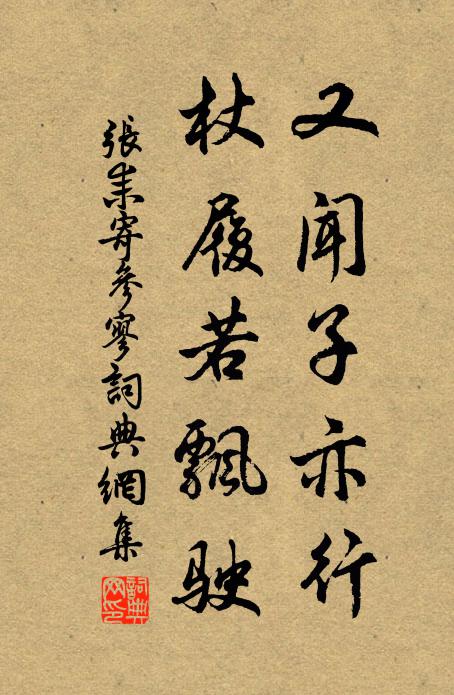 又聞子亦行
杖履若飄駛
張耒寄參寥詞典網集
詞典網印